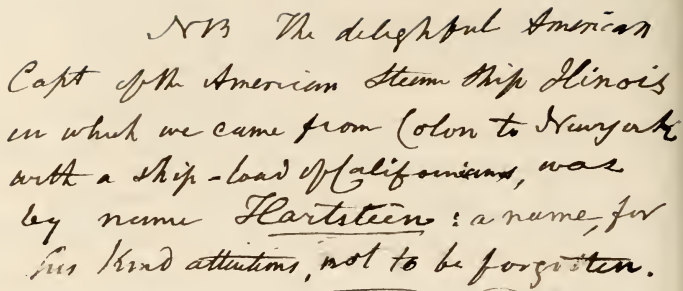 NB The delightful American
Capt of the American Steam Ship Ilinois
in which we came from Colon to Newyork
with a ship-load of Californians, was
by name Hartsteen: a name, for
his kind attentions, not to be forgotten.